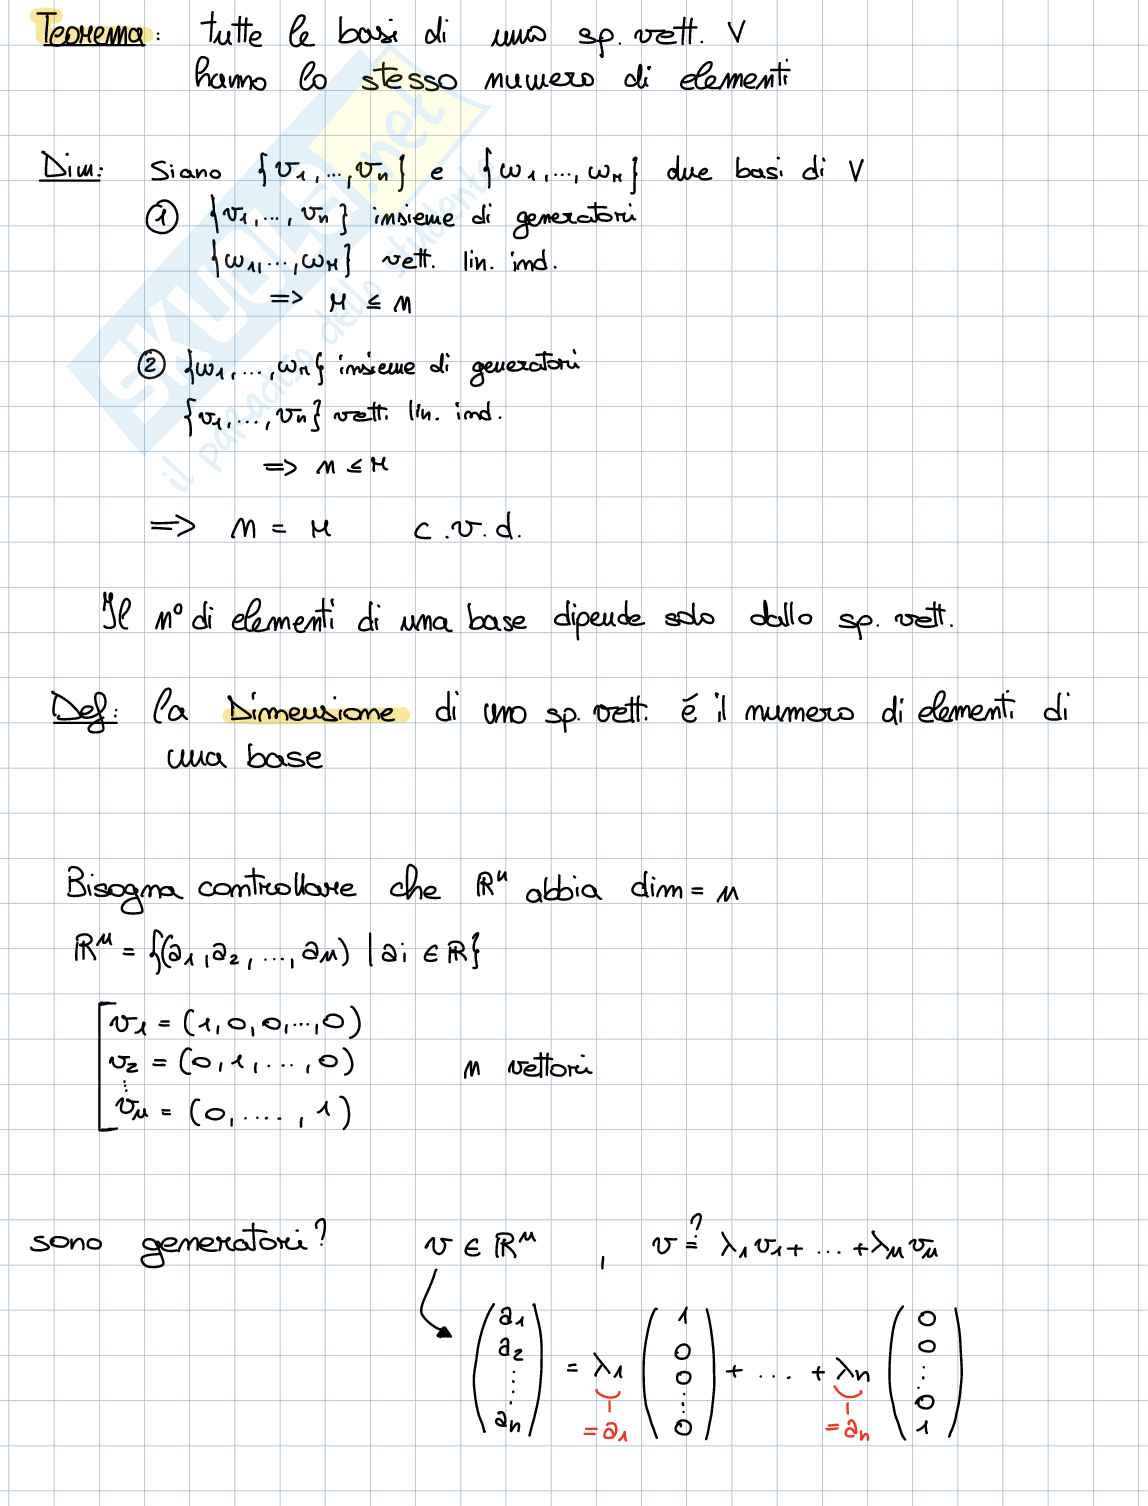 Teorema: tutte le basi di uno sp. vett. V
hanno lo stesso numero di elementi
Dim: Siano {v1, ..., vn} e {w1, ..., wm} due basi di V
① {v1, ..., vn} insieme di generatori
{w1, ..., wm} vett. lin. ind.
=> m ≤ n
② {w1, ..., wm} insieme di generatori
{v1, ..., vn} vett. lin. ind.
=> n ≤ m
=> n = m c.v.d.
Il n° di elementi di una base dipende solo dallo sp. vett.
Def: la Dimensione di uno sp. vett. é il numero di elementi di
una base
Bisogna controllare che ℝⁿ abbia dim = n
ℝⁿ = {(a1, a2, ..., an) | ai ∈ ℝ}
v1 = (1, 0, 0, ..., 0)
v2 = (0, 1, ..., 0) n vettori
⋮
vn = (0, ...., 1)
sono generatori? v ∈ ℝⁿ , v =? λ1 v1 + ... + λn vn
(a1 a2 ... an) = λ1 (1 0 0 ... 0) + .... + λn (0 0 ... 0 1)
= a1 = an
SKUOLA.net
il paradiso dello studente